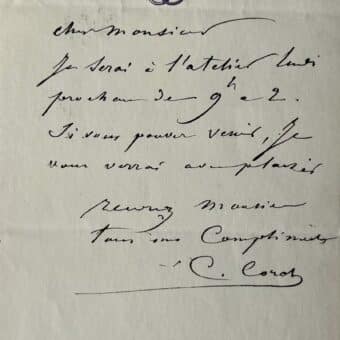 cher Monsieur
Je serai à l'atelier lundi
prochain de 9h a 2.
Si vous pouvez venir, Je
vous verrai avec plaisir
recevez Monsieur
tous mes Compliments
C. Corot